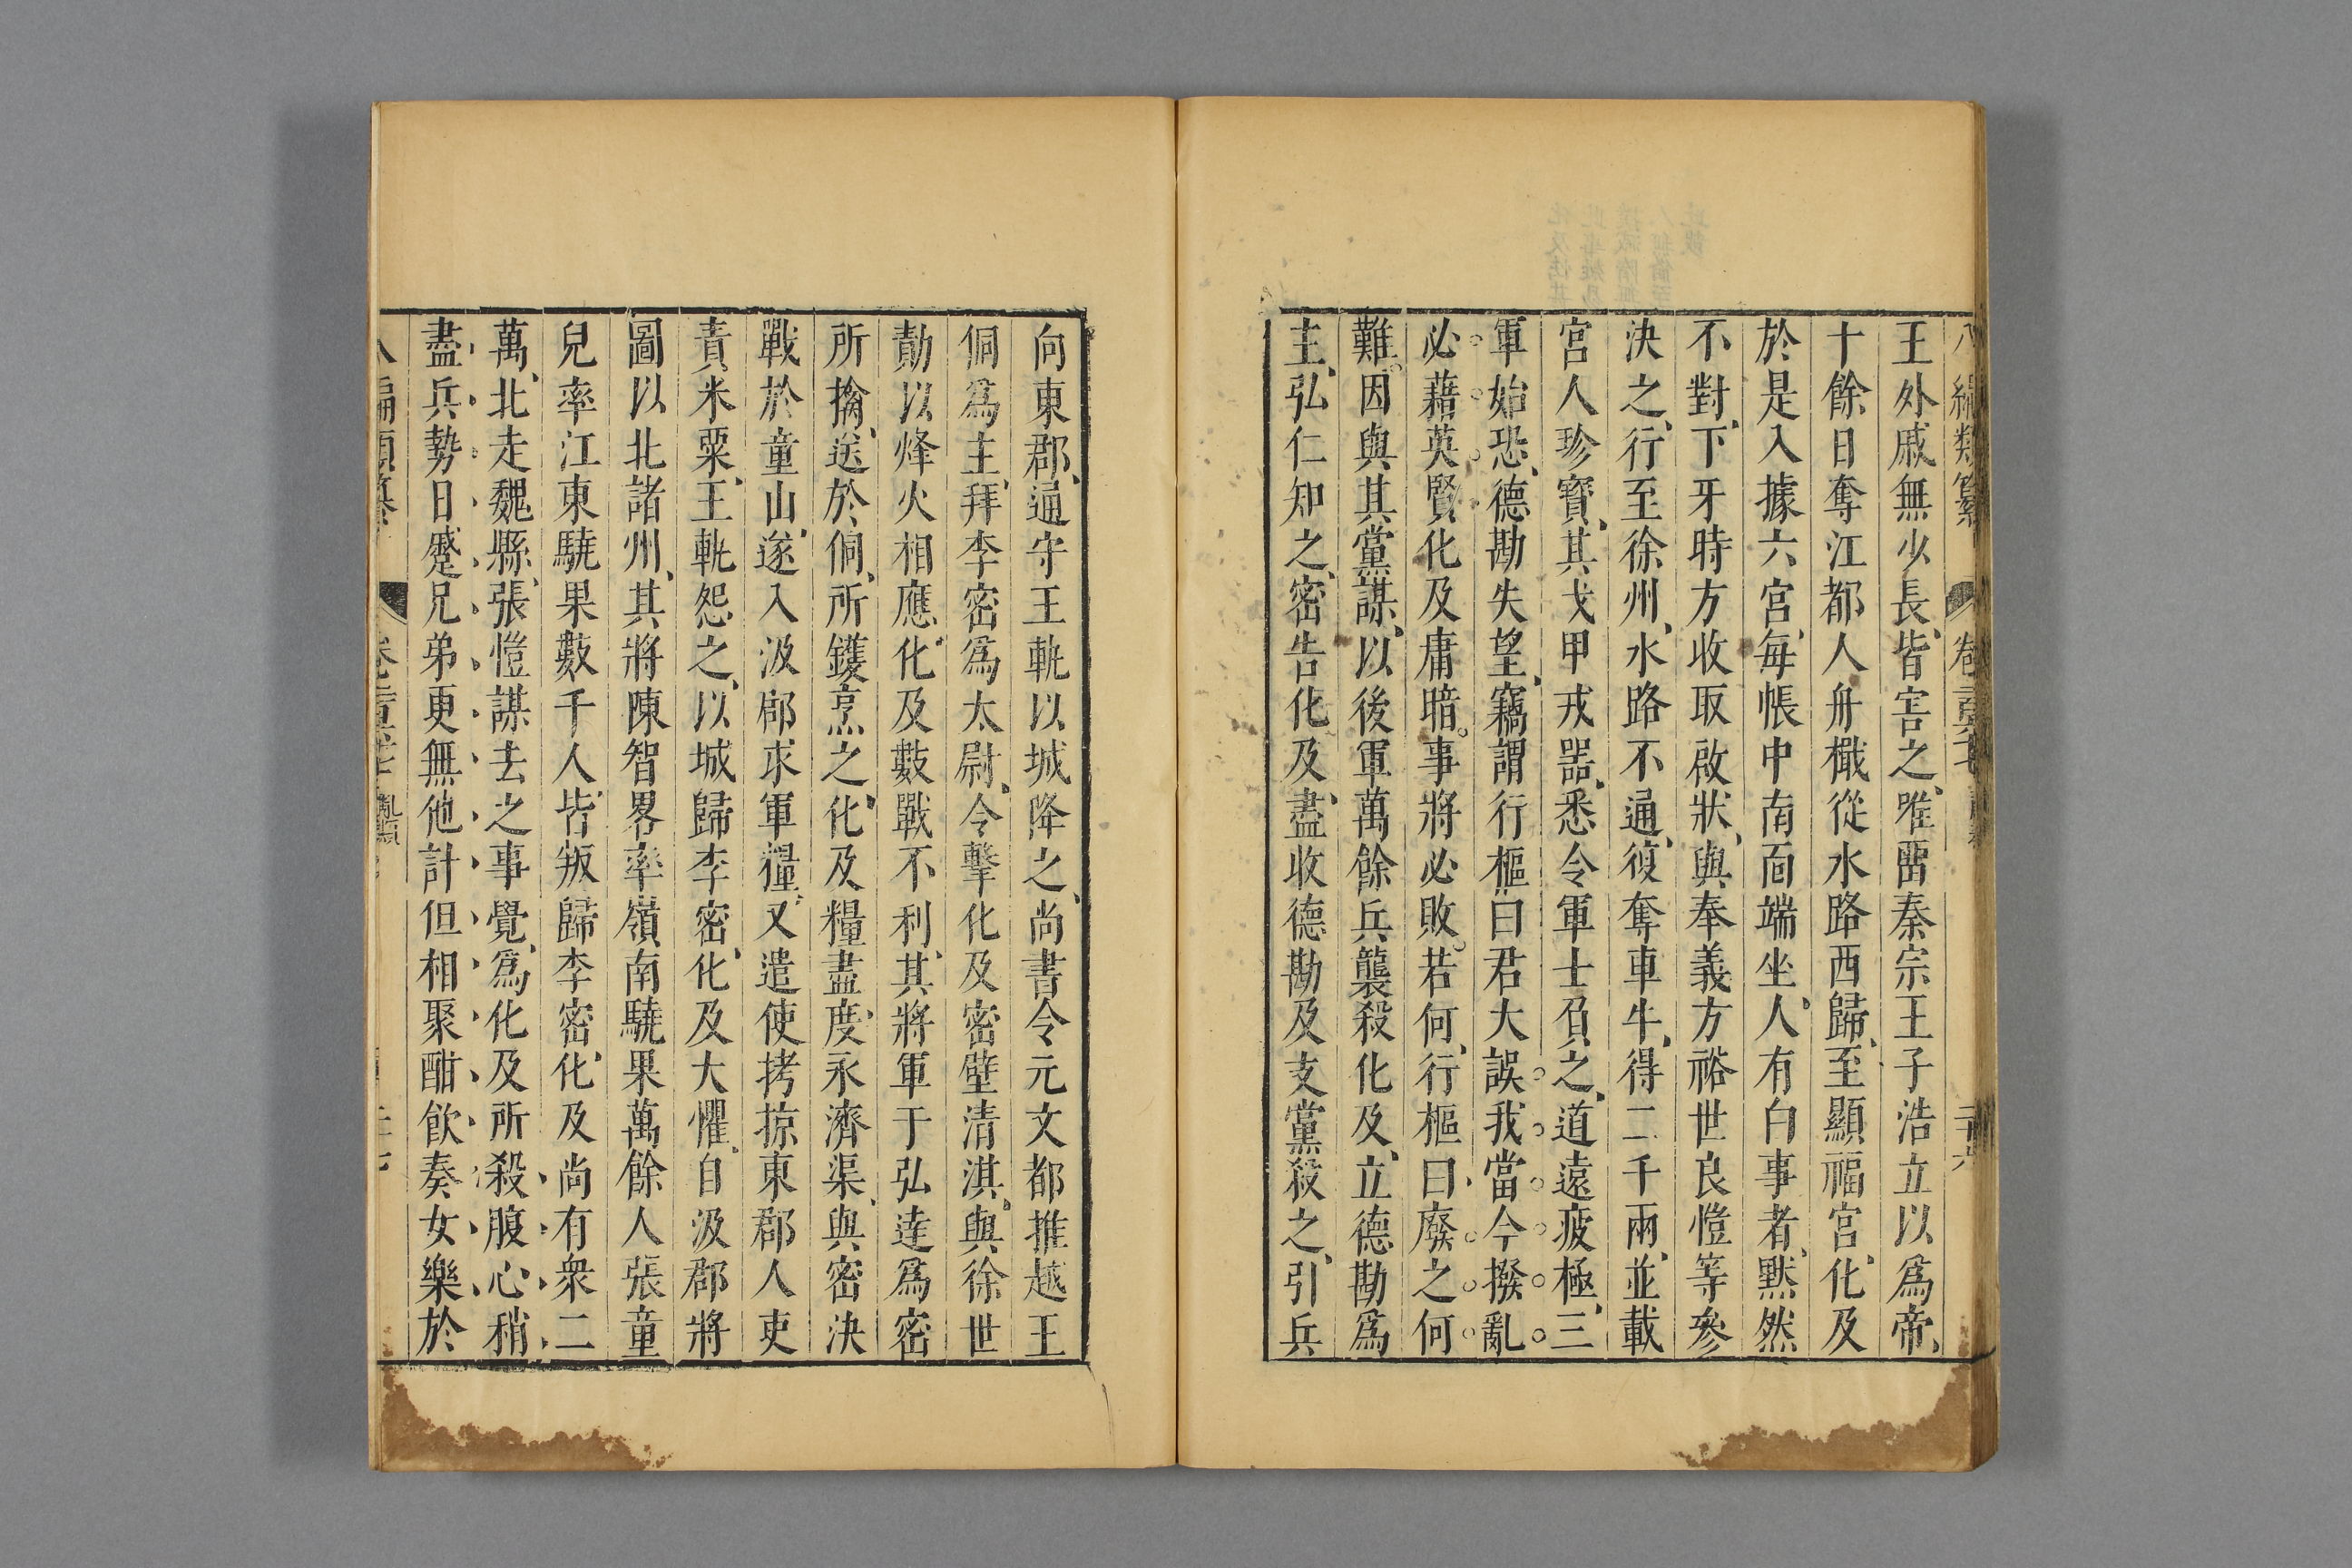 王外戚無少長皆害之唯畱秦宗王子浩立以爲帝
十餘日奪江都人舟檝從水路西歸至顯福宮化及
於是入據六宮每帳中南面端坐人有白事者默然
不對下牙時方收取啟狀與奉義方裕世良愷等參
決之行至徐州水路不通復奪車牛得二千兩並載
宮人珍寶其戈甲戎器悉令軍士負之道遠疲極三
軍始恐德勘失望竊謂行樞曰君大誤我當今撥亂
必藉英賢化及庸暗事將必敗若何行樞曰廢之何
難因與其黨謀以後軍萬餘兵襲殺化及立德勘爲
主弘仁知之密告化及盡收德勘及支黨殺之引兵
向東郡通守王軌以城降之尚書令元文都推越王
侗爲主拜李密爲太尉令擊化及密壁清淇與徐世
勣以烽火相應化及數戰不利其將軍于弘達爲密
所擒送於侗所鑊烹之化及糧盡度永濟渠與密決
戰於童山遂入汲郡求軍糧又遣使拷掠東郡人吏
責米粟王軌怨之以城歸李密化及大懼自汲郡將
圖以北諸州其將陳智畧率嶺南驍果萬餘人張童
兒率江東驍果數千人皆叛歸李密化及尚有衆二
萬北走魏縣張愷謀去之事覺爲化及所殺腹心稍
盡兵勢日蹙兄弟更無他計但相聚酣飲奏女樂於